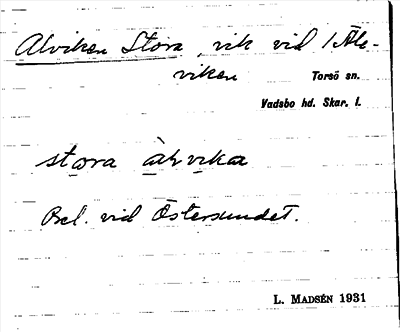 Alviken Stora, vik vid /Ale-
viken
Torsö sn.
Vadsbo hd. Skar. l.
stora àlvika
Bel. vid Östersundet.
L. MADSÉN 1931